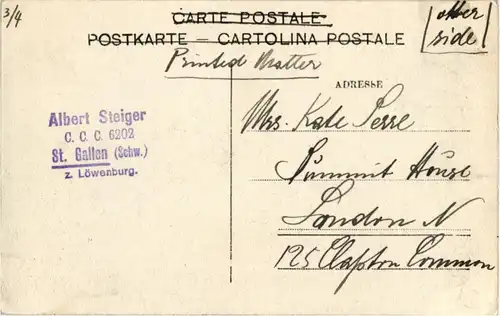 3/4
CARTE POSTALE
POSTKARTE – CARTOLINA POSTALE
other
side
Printed Matter
ADRESSE
Albert Steiger
C. C. C. 6202
St. Gallen (Schw.)
z. Löwenburg.
Mrs. Kate Perre
Summit House
London N
125 Clapton Common